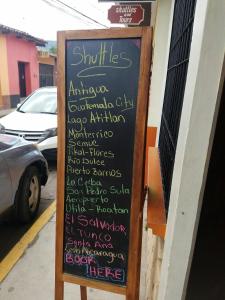 shuttles
and
Tours
Shuttles
Antigua
Guatemala City
Lago Atitlan
Monterrico
Semuc
Tikal-Flores
Rio Dulce
Puerto Barrios
La Ceiba
San Pedro Sula
Aeropuerto
Utila - Roatan
El Salvador
El Tunco
Santa Ana
Leon Nicaragua
BOOK
HERE